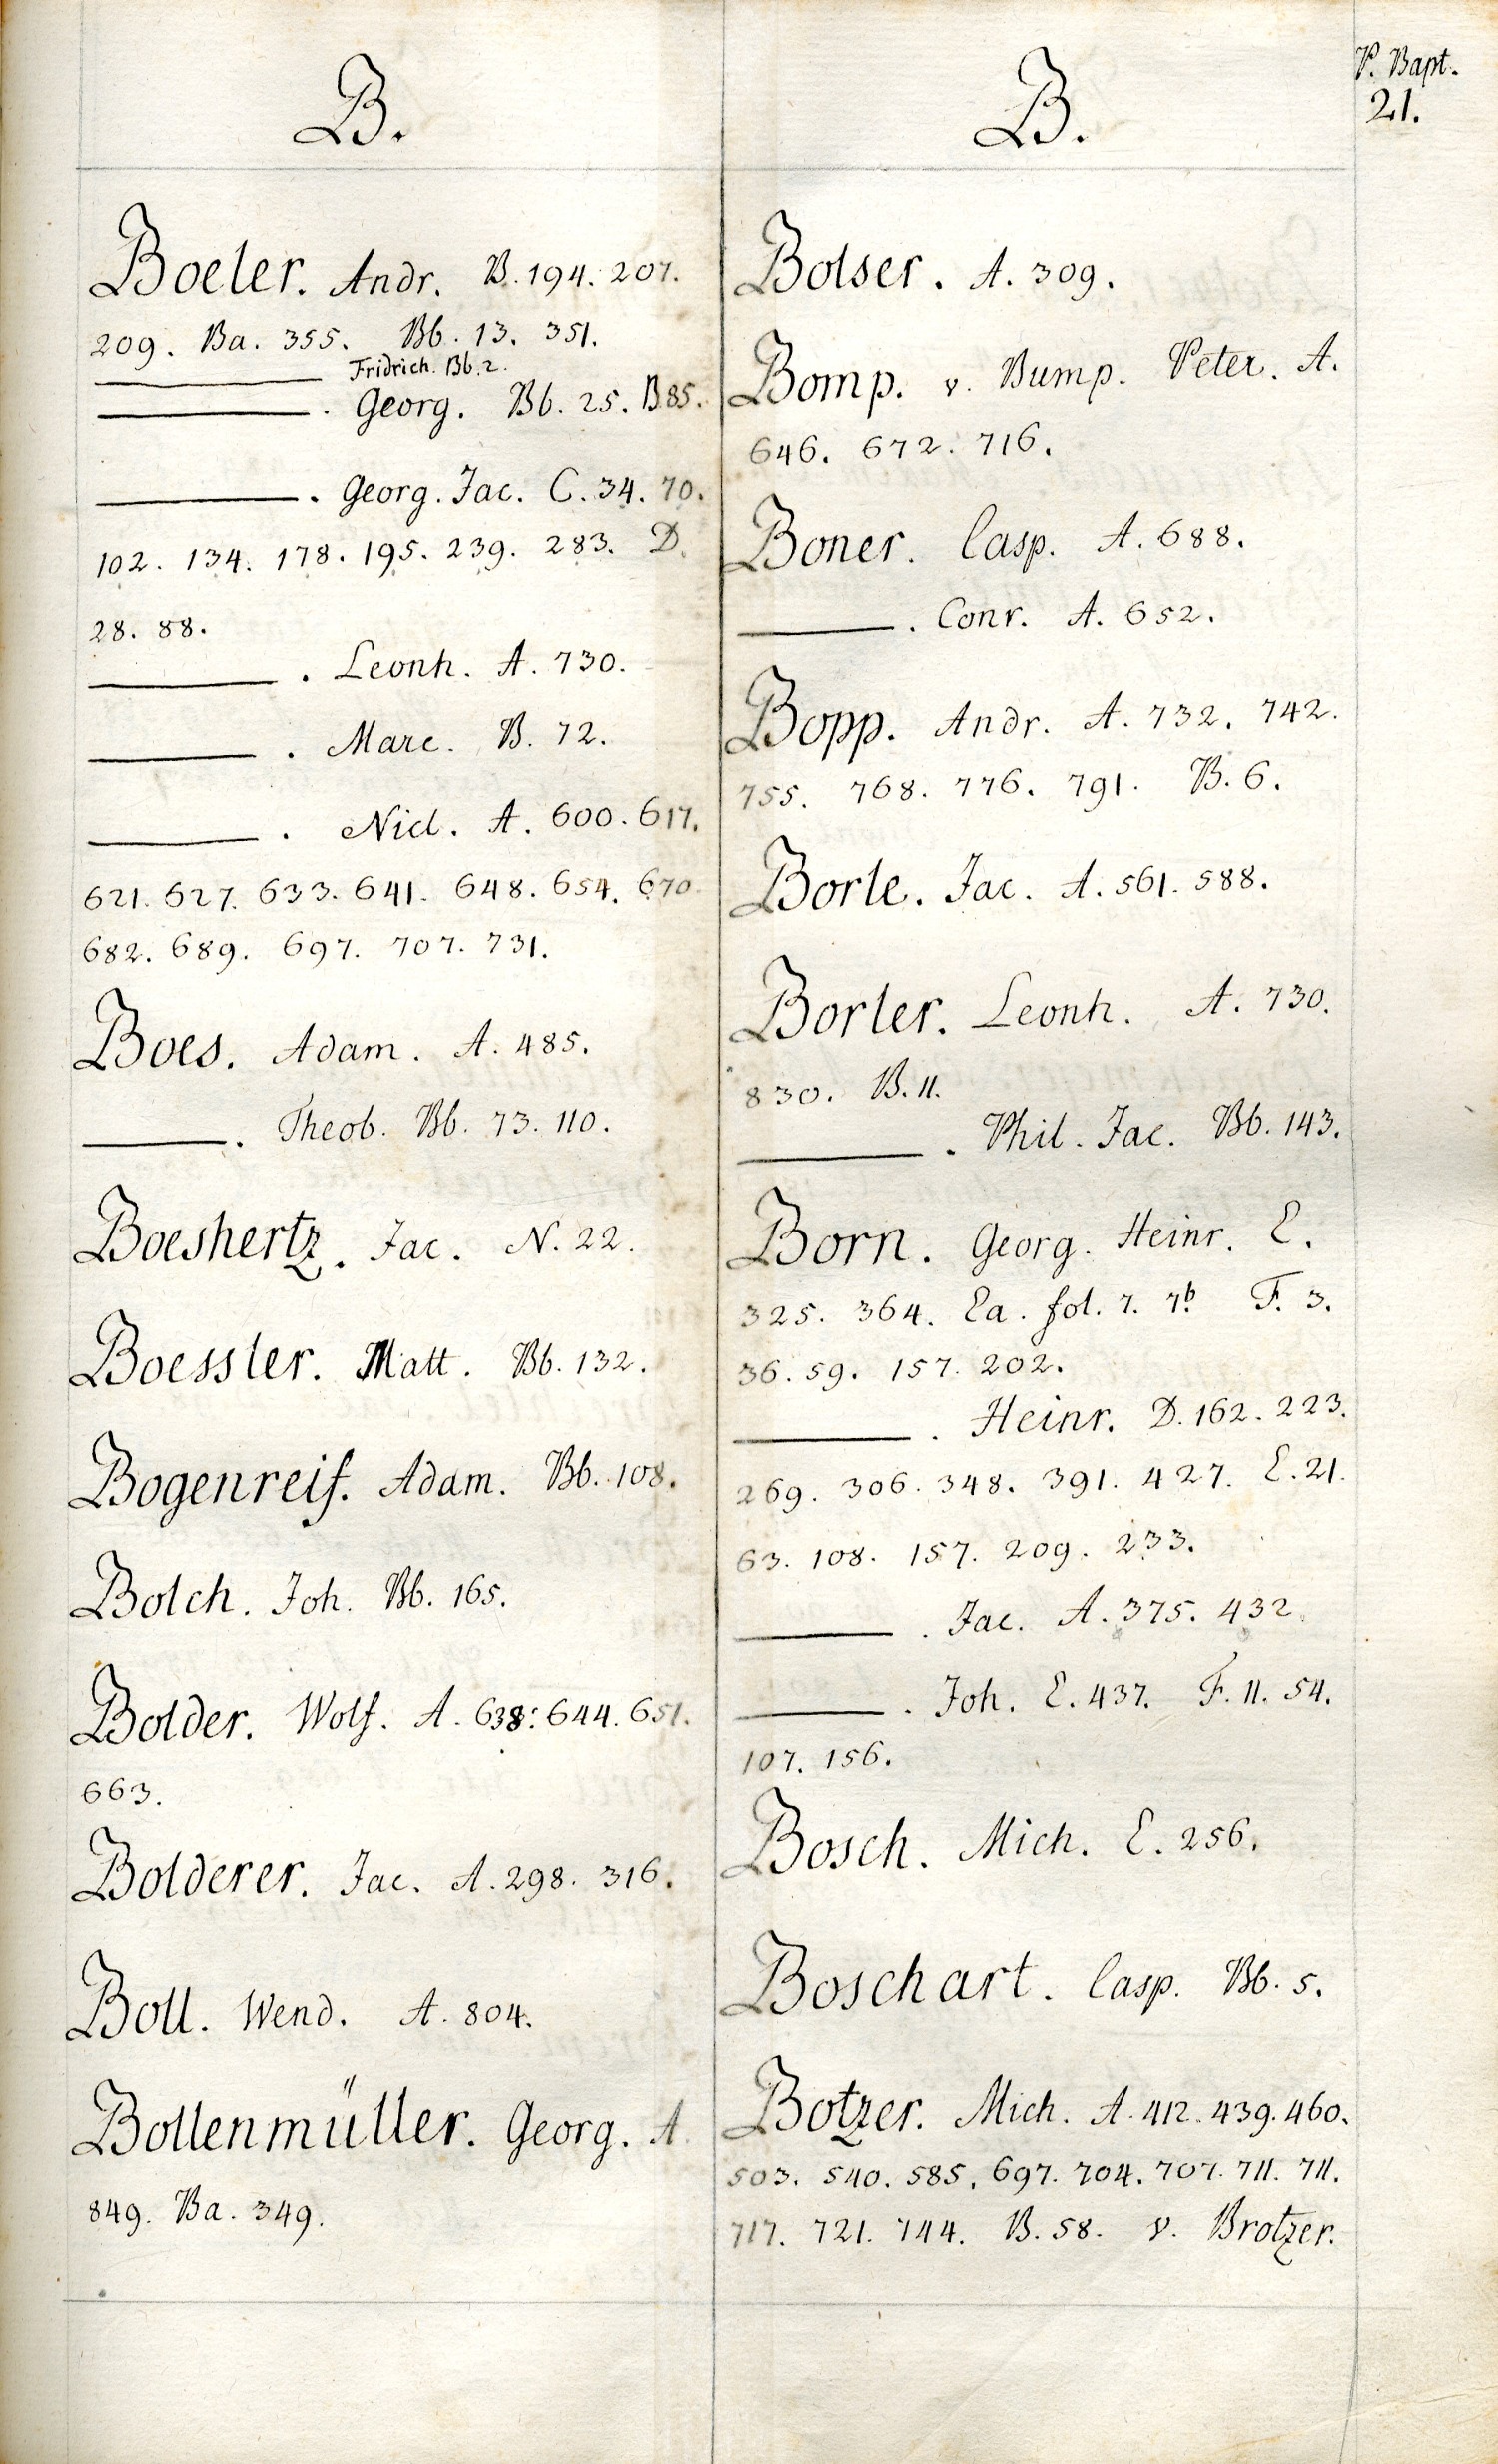 P. Bapt.
21.
B.
Boeler. Andr. B. 194. 207.
209. Ba. 355. Bb. 13. 351.
Fridrich. Bb. 2.
———. Georg. Bb. 25. B 85.
———. Georg. Jac. C. 34. 70.
102. 134. 178. 195. 239. 283. D.
28. 88.
———. Leonh. A. 730.
———. Marc. B. 72.
———. Nicl. A. 600. 617.
621. 627. 633. 641. 648. 654. 670
682. 689. 697. 707. 731.
Boes. Adam. A. 485.
———. Theob. Bb. 73. 110.
Boeshertz. Jac. N. 22.
Boessler. Matt. Bb. 132.
Bogenreif. Adam. Bb. 108.
Bolch. Joh. Bb. 165.
Bolder. Wolf. A. 638. 644. 651.
663.
Bolderer. Jac. A. 298. 316.
Boll. Wend. A. 804.
Bollenmüller. Georg. A.
849. Ba. 349.
B.
Bolser. A. 309.
Bomp. v. Bump. Peter. A.
646. 672. 716.
Boner. Casp. A. 688.
———. Conr. A. 652.
Bopp. Andr. A. 732. 742.
755. 768. 776. 791. B. 6.
Borle. Jac. A. 561. 588.
Borler. Leonh. A. 730.
830. B. 11.
———. Phil. Jac. Bb. 143.
Born. Georg. Heinr. E.
325. 364. Ea. fol. 7. 7b. F. 3.
36. 59. 157. 202.
———. Heinr. D. 162. 223.
269. 306. 348. 391. 427. E. 21.
63. 108. 157. 209. 233.
———. Jac. A. 375. 432.
———. Joh. E. 437. F. 11. 54.
107. 156.
Bosch. Mich. E. 256.
Boschart. Casp. Bb. 5.
Botzer. Mich. A. 412. 439. 460.
503. 540. 585. 697. 704. 707. 711. 711.
717. 721. 744. B. 58. v. Brotzer.